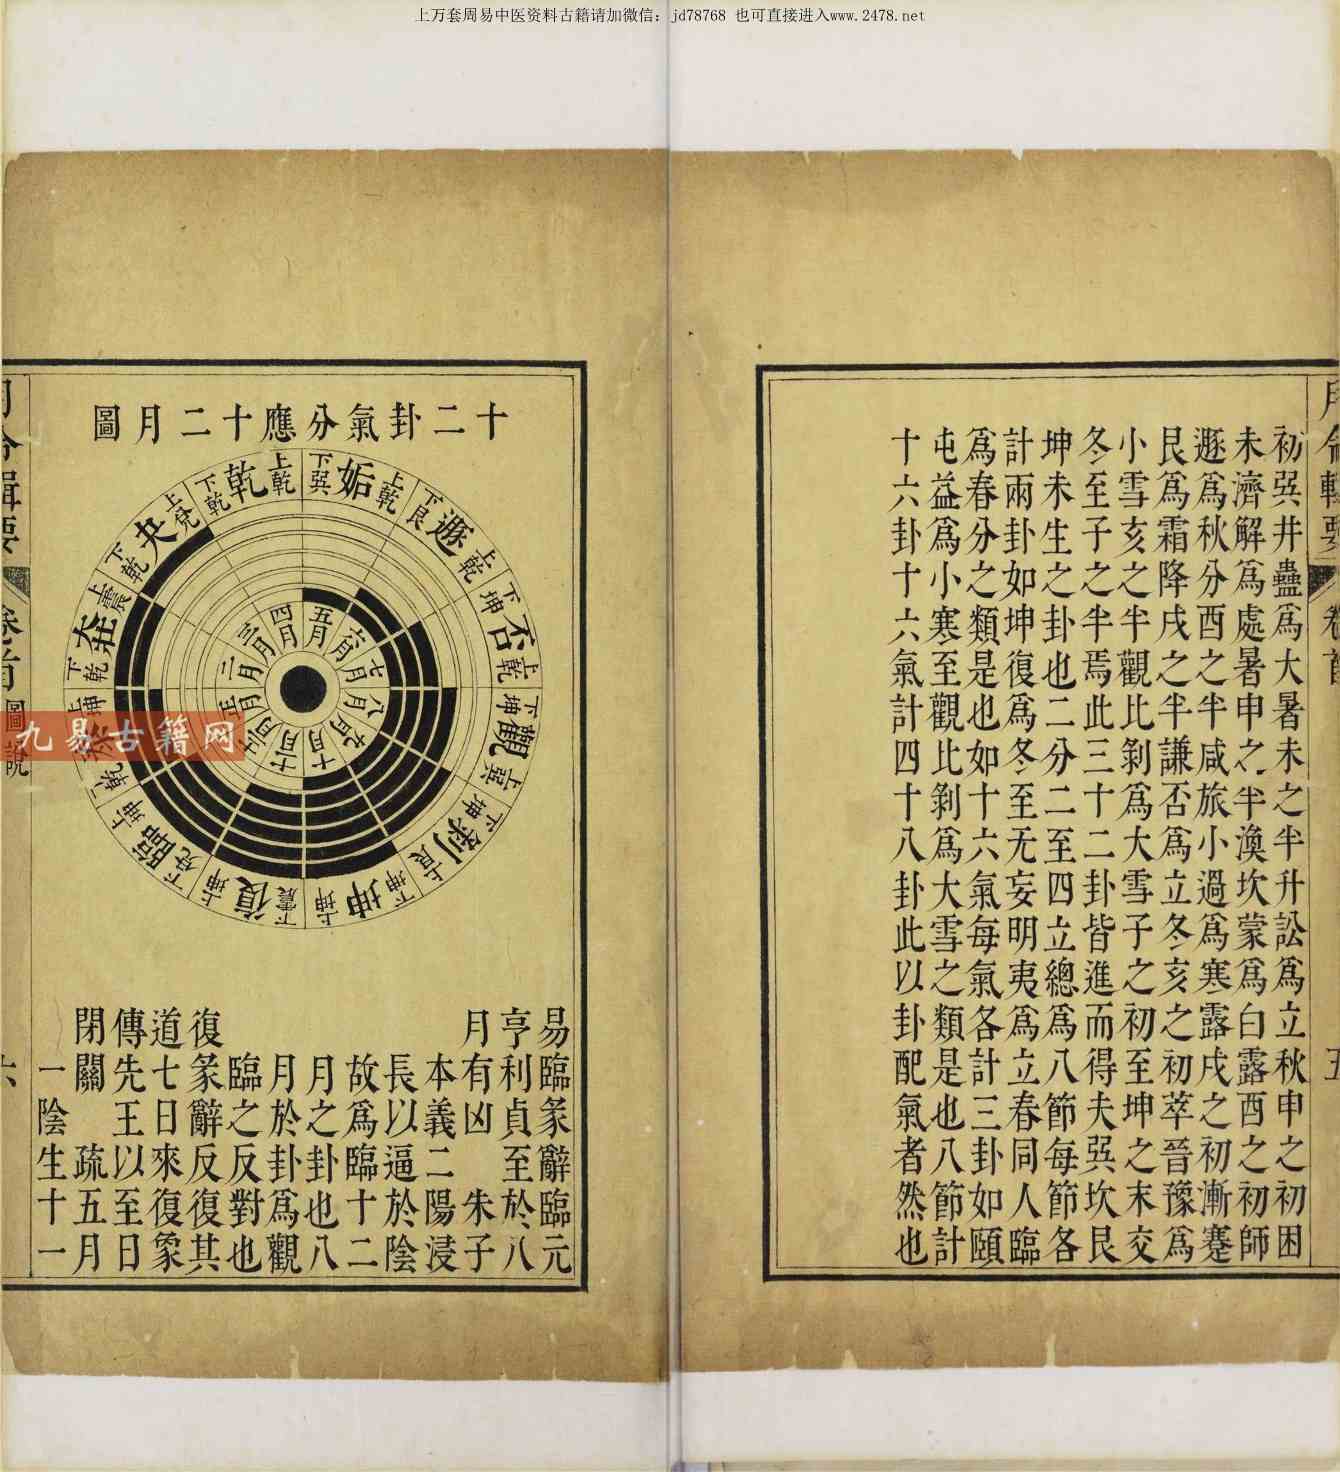 上万套周易中医资料古籍请加微信：jd78768 也可直接进入www.2478.net
初巽井蠱爲大暑未之半升訟爲立秋申之初困
未濟解爲處暑申之半渙坎蒙爲白露酉之初師
遯爲秋分酉之半咸旅小過爲寒露戌之初漸蹇
艮爲霜降戌之半謙否爲立冬亥之初萃晉豫爲
小雪亥之半觀比剝爲大雪子之初至坤之末交
冬至子之半焉此三十二卦皆進而得夫巽坎艮
坤未生之卦也二分二至四立總爲八節每節各
計兩卦如坤復爲冬至无妄明夷爲立春同人臨
爲春分之類是也如十六氣每氣各計三卦如頤
屯益爲小寒至觀比剝爲大雪之類是也八節計
十六卦十六氣計四十八卦此以卦配氣者然也
十二卦氣分應十二月圖
下巽姤上乾
下艮遯上乾
下坤否上乾
下坤觀上巽
下坤剝上艮
下坤坤上坤
下震復上坤
下兌臨上坤
乾泰坤上
下乾大壯上震
下乾夬上兌
下乾乾上乾
五月
六月
七月
八月
九月
十月
十一月
十二月
正月
二月
三月
四月
易臨彖辭臨元
亨利貞至於八
月有凶 朱子
本義二陽浸
長以逼於陰
故爲臨十二
月之卦也八
月於卦爲觀
臨之反對也
復彖辭反復其
道七日來復象
傳先王以至日
閉關 疏五月
一陰生十一
卷首
圖說
六
九易古籍网